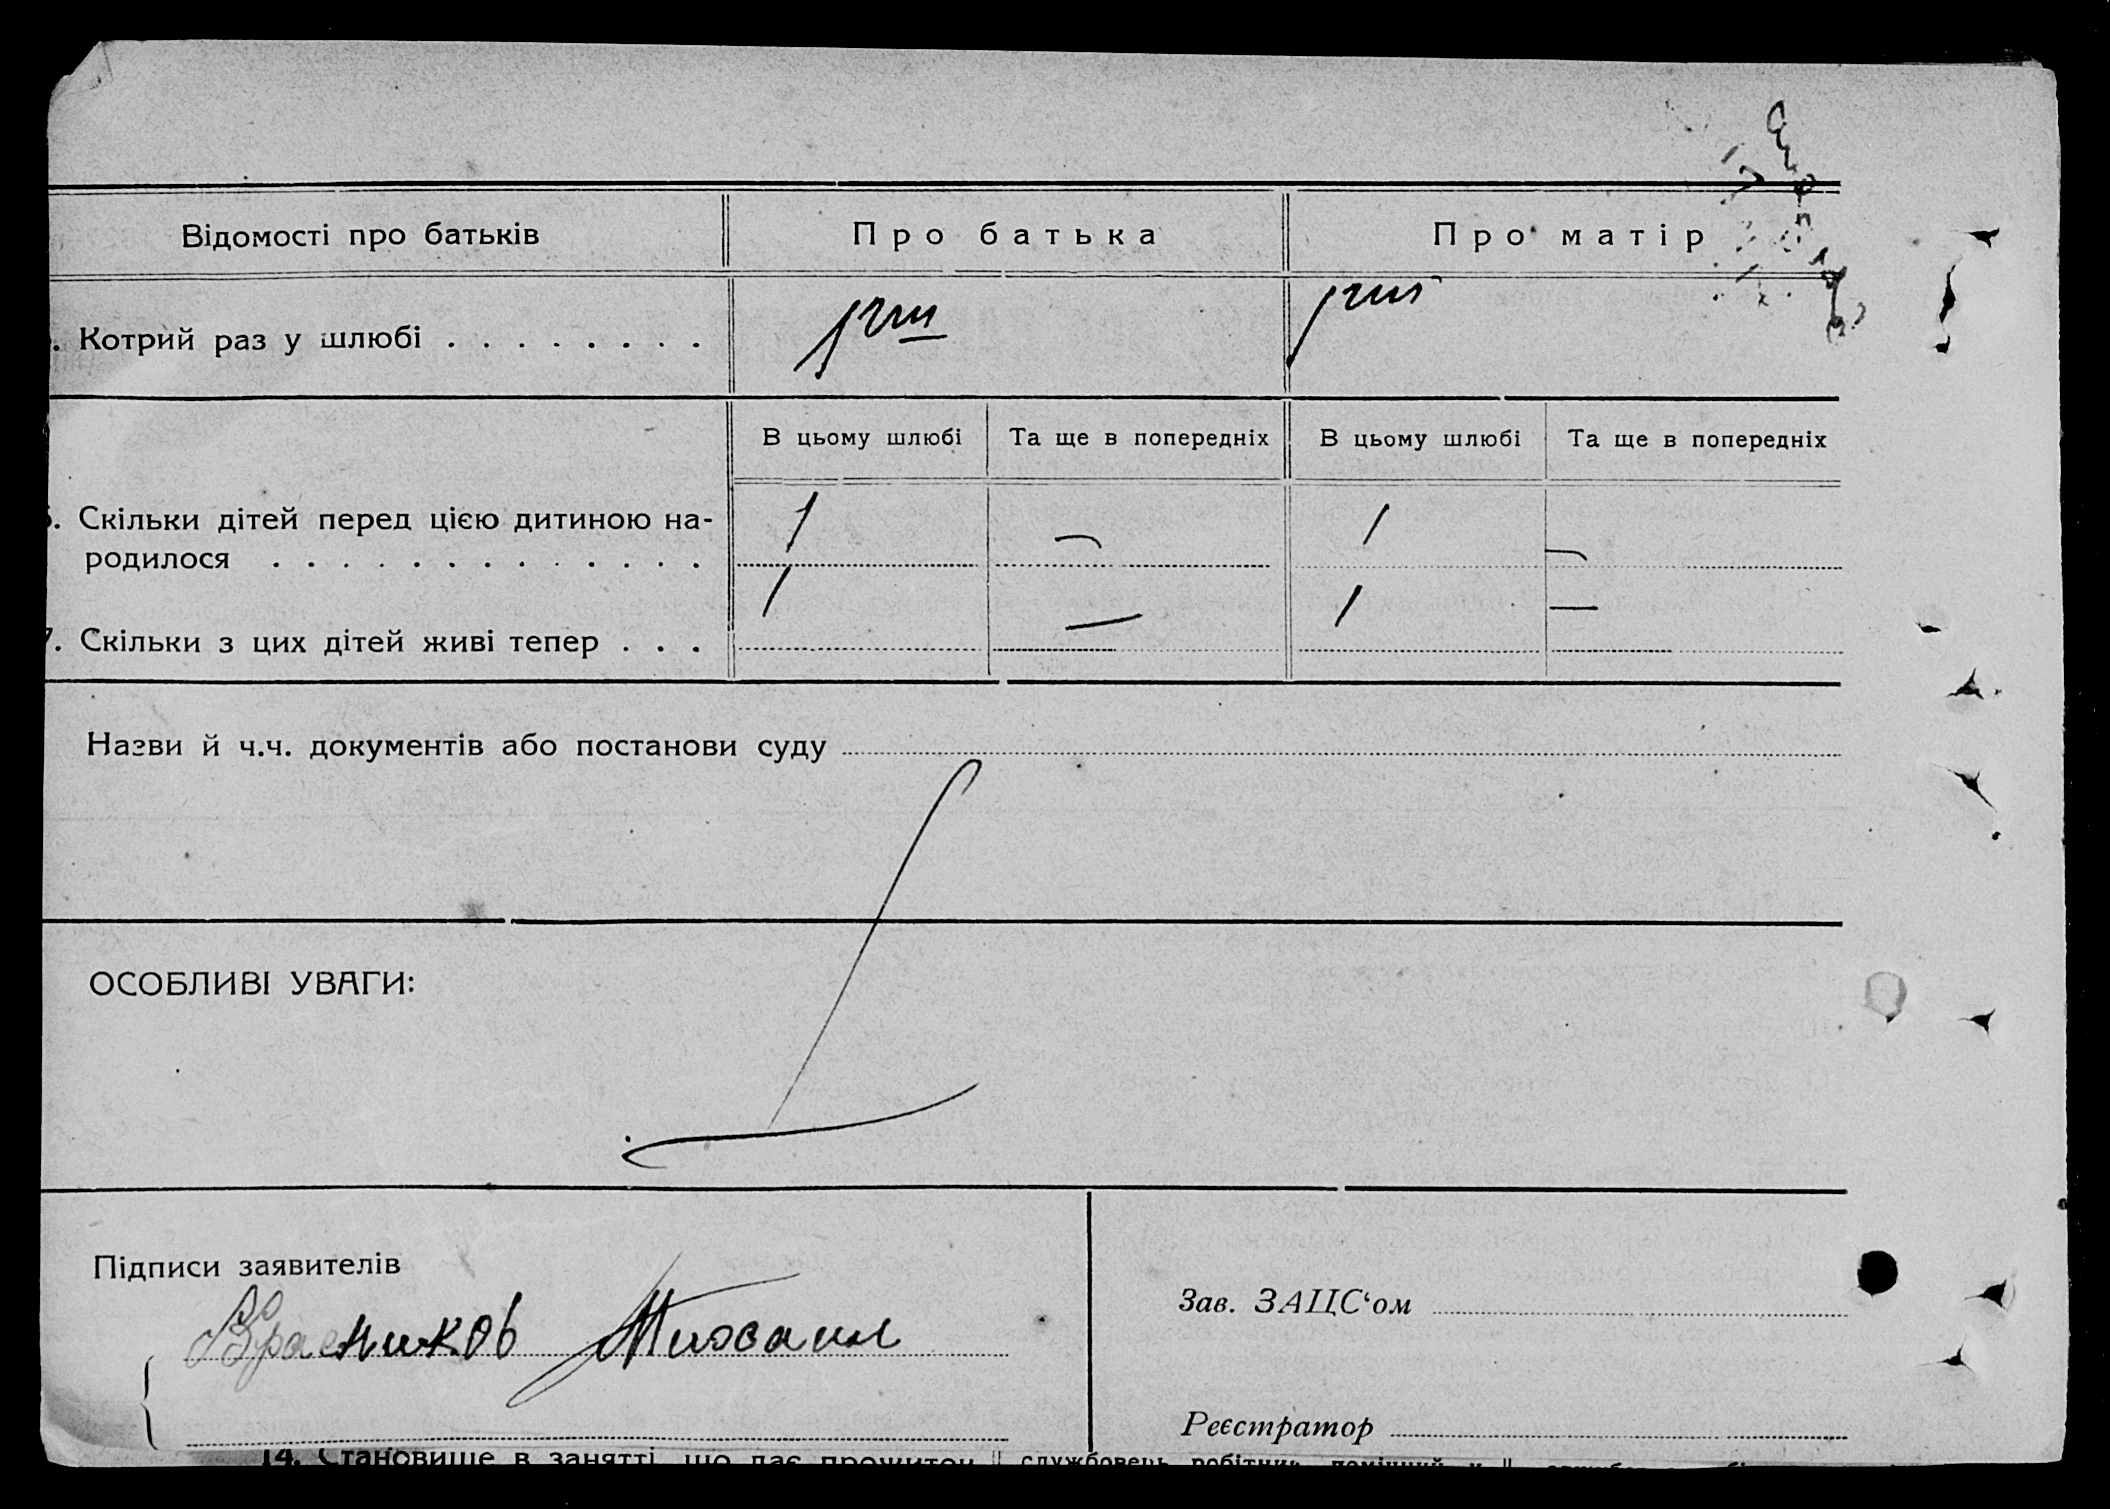 Відомості про батьків Про батька Про матір
Котрий раз у шлюбі . . . . . . . .
В цьому шлюбі Та ще в попередніх В цьому шлюбі Та ще в попередніх
. Скільки дітей перед цією дитиною на-
родилося . . . . . . . . . . . . 1 — 1 —
7. Скільки з цих дітей живі тепер . . . 1 — 1 —
Назви й ч.ч. документів або постанови суду
ОСОБЛИВІ УВАГИ:
Підписи заявителів
Зав. ЗАЦС‘ом
Красников Михаил
Реєстратор
14. Становище в занятті, що дає прожиток службовець, робітник,